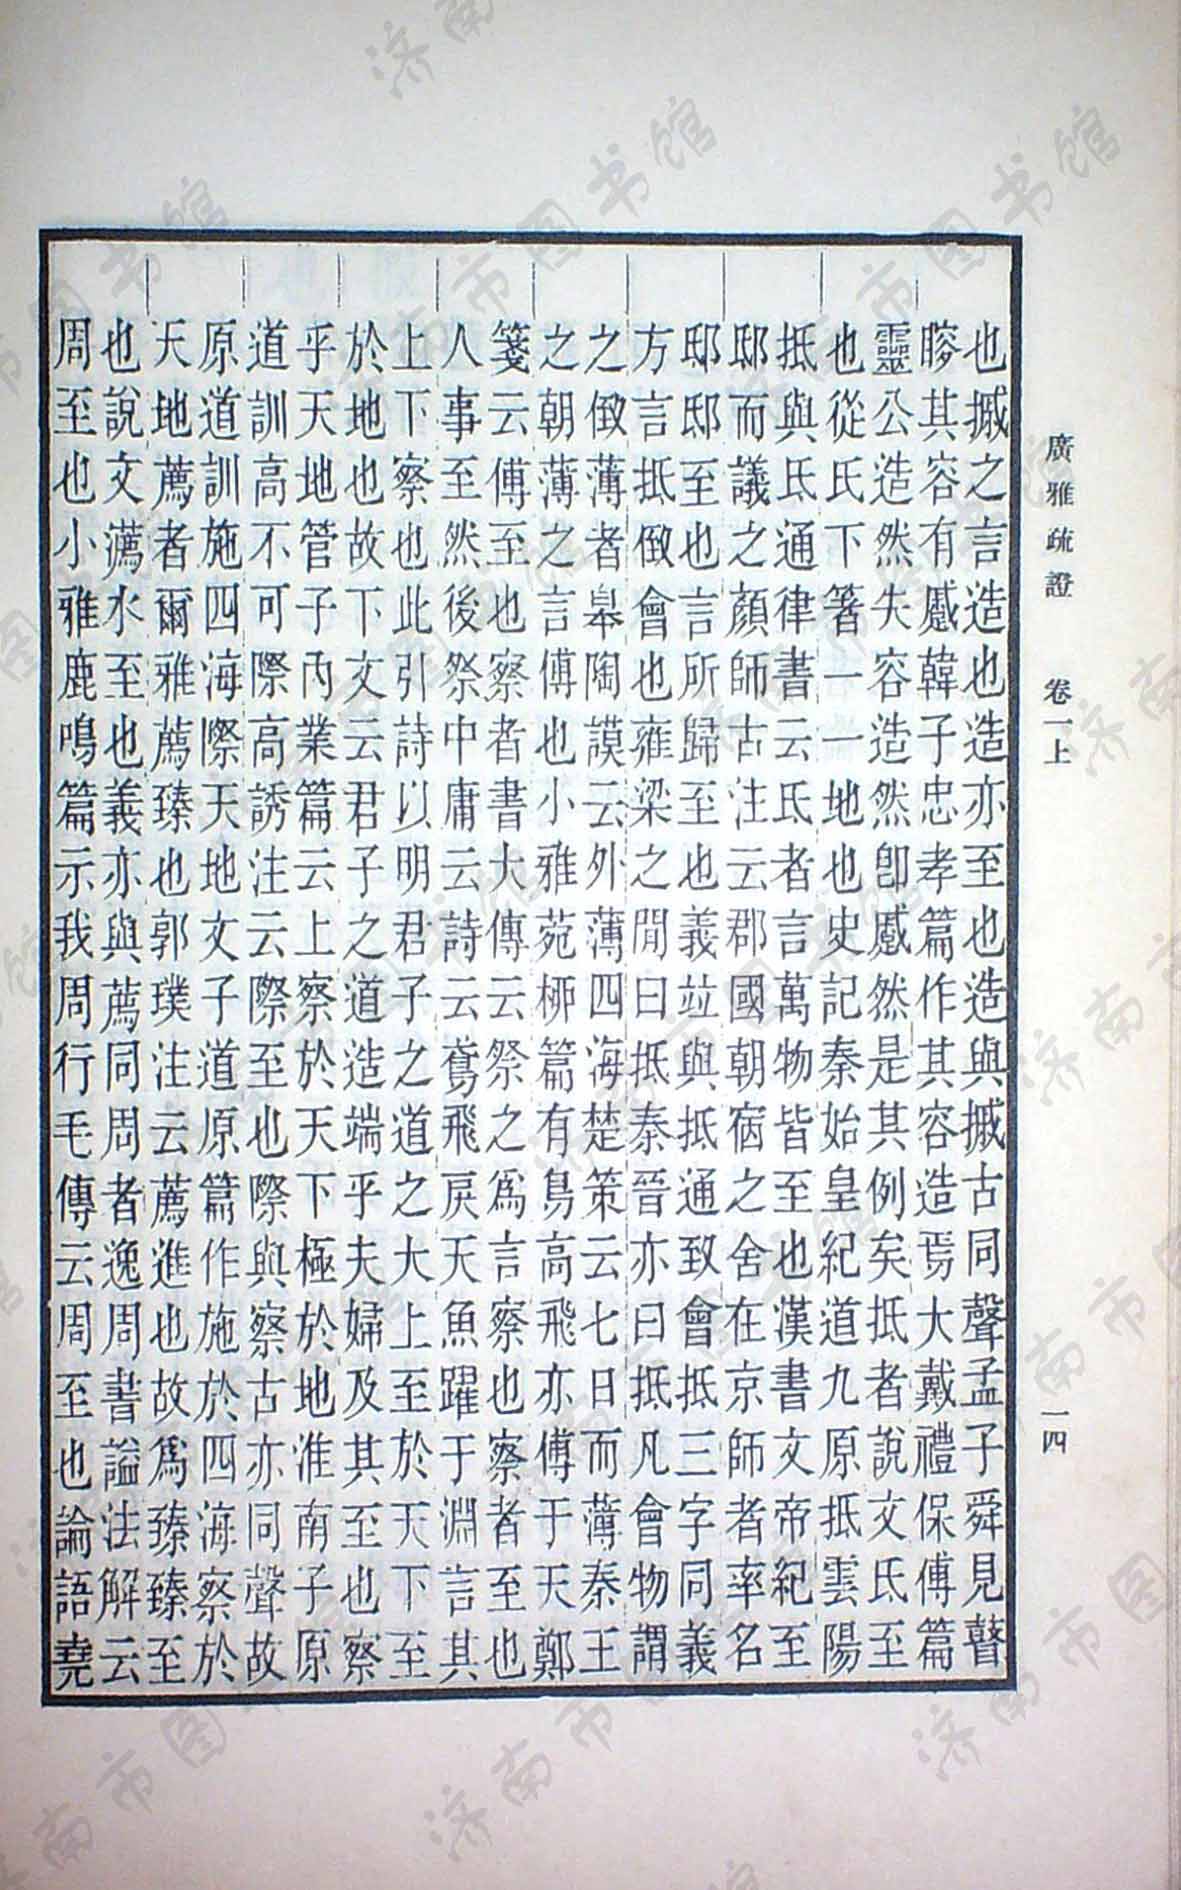 廣雅疏證　卷一上　一四
也摵之言造也造亦至也造與摵古同聲孟子舜見瞽
瞍其容有蹙韓子忠孝篇作其容造焉大戴禮保傅篇
靈公造然失容造然卽蹙然是其例矣抵者說文氐至
也從氏下箸一一地也史記秦始皇紀道九原抵雲陽
抵與氐通律書云氐者言萬物皆至也漢書文帝紀至
邸而議之顏師古注云郡國朝宿之舍在京師者率名
邸邸至也言所歸至也義竝與抵通致會抵三字同義
方言抵傚會也雍梁之閒曰抵秦晉亦曰抵凡會物謂
之傚薄者皋陶謨云外薄四海楚策云七日而薄秦王
之朝薄之言傅也小雅菀柳篇有鳥高飛亦傅于天鄭
箋云傅至也察者書大傳云祭之爲言察也察者至也
人事至然後祭中庸云詩云鳶飛戾天魚躍于淵言其
上下察也此引詩以明君子之道之大上至於天下至
於地也故下文云君子之道造端乎夫婦及其至也察
乎天地管子內業篇云上察於天下極於地淮南子原
道訓高不可際高誘注云際至也際與察古亦同聲故
原道訓施四海際天地文子道原篇作施於四海察於
天地薦者爾雅薦臻也郭璞注云薦進也故爲臻臻至
也說文瀳水至也義亦與薦同周者逸周書謚法解云
周至也小雅鹿鳴篇示我周行毛傳云周至也論語堯